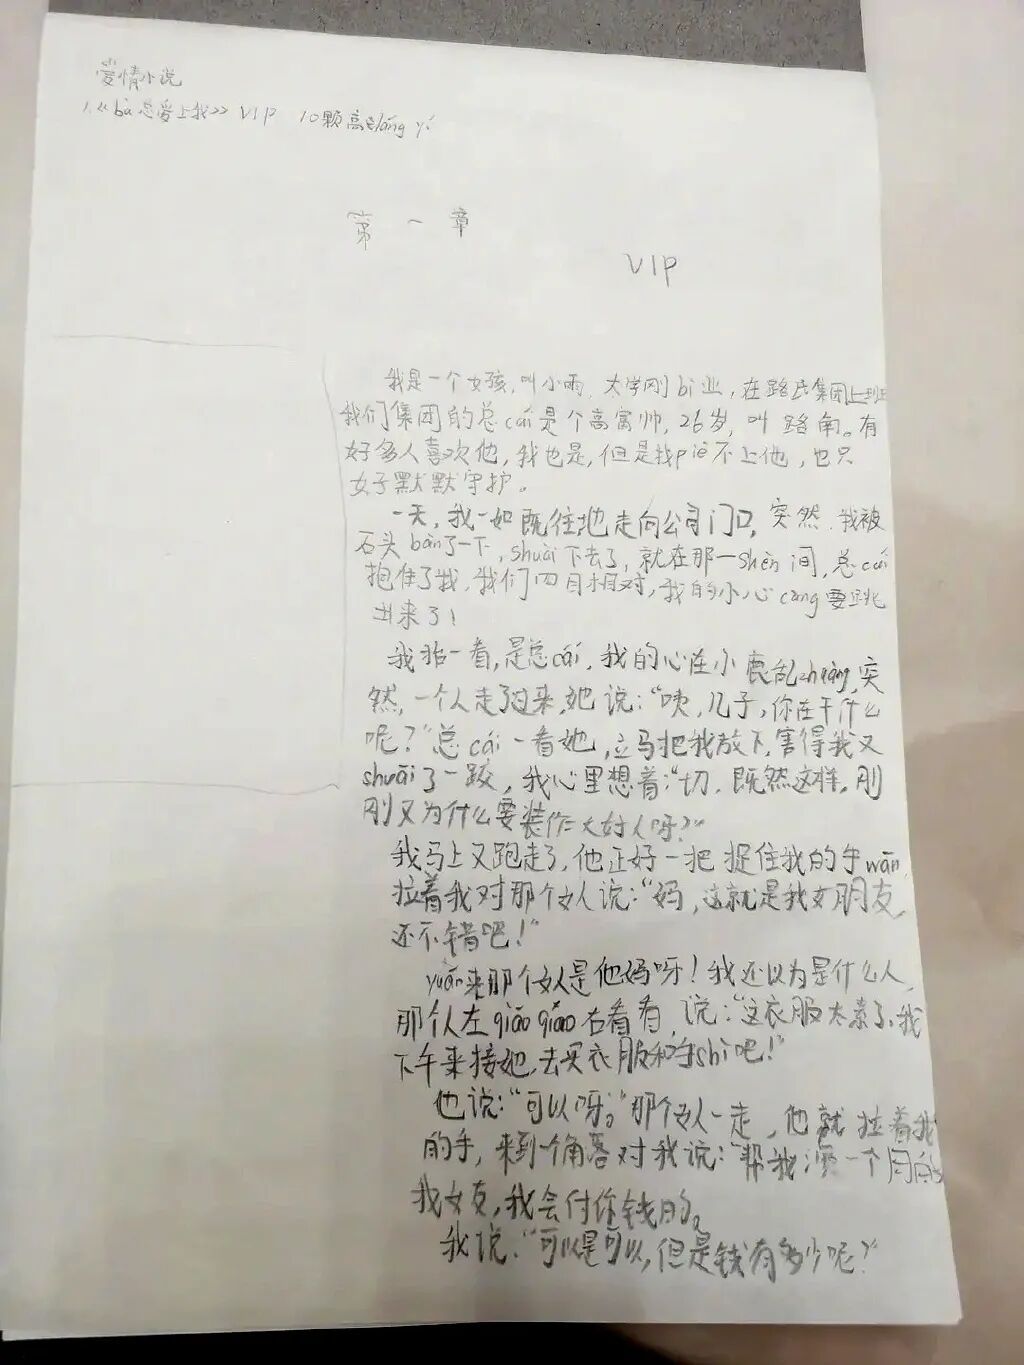 爱情小说
1.《bà总爱上我》 VIP 10颗高 yí
第一章
VIP
我是一个女孩,叫小雨,大学刚bì业,在路氏集团上班
我们集团的总cái是个高富帅,26岁,叫路南。有
好多人喜欢他,我也是,但是我pèi不上他,也只
好默默守护。
一天,我一如既往地走向公司门口,突然,我被
石头bàn了一下,shuāi下去了,就在那一shèn间,总cái
抱住了我,我们四目相对,我的小心cāng要跳
出来了!
我抬一看,是总cái,我的心在小鹿乱zhuàng,突
然,一个人走了过来,她说:“咦,儿子,你在干什么
呢?”总cái一看她,立马把我放下,害得我又
shuāi了一跤,我心里想着:“切,既然这样,刚
刚又为什么要装作大好人呀?”
我马上又跑走了,他正好一把捉住我的手wān,
拉着我对那个女人说:“妈,这就是我女朋友,
还不错吧!”
yuán来那个女人是他妈呀!我还以为是什么人,
那个人左qiáo qiáo右看看,说:“这衣服太素了,我
下午来接她,去买衣服和手shì吧!”
他说:“可以呀。”那个女人一走,他就拉着我
的手,来到一个角落对我说:“帮我演一个月的
我女友,我会付你钱的。
我说:“可以是可以,但是钱有多少呢?”